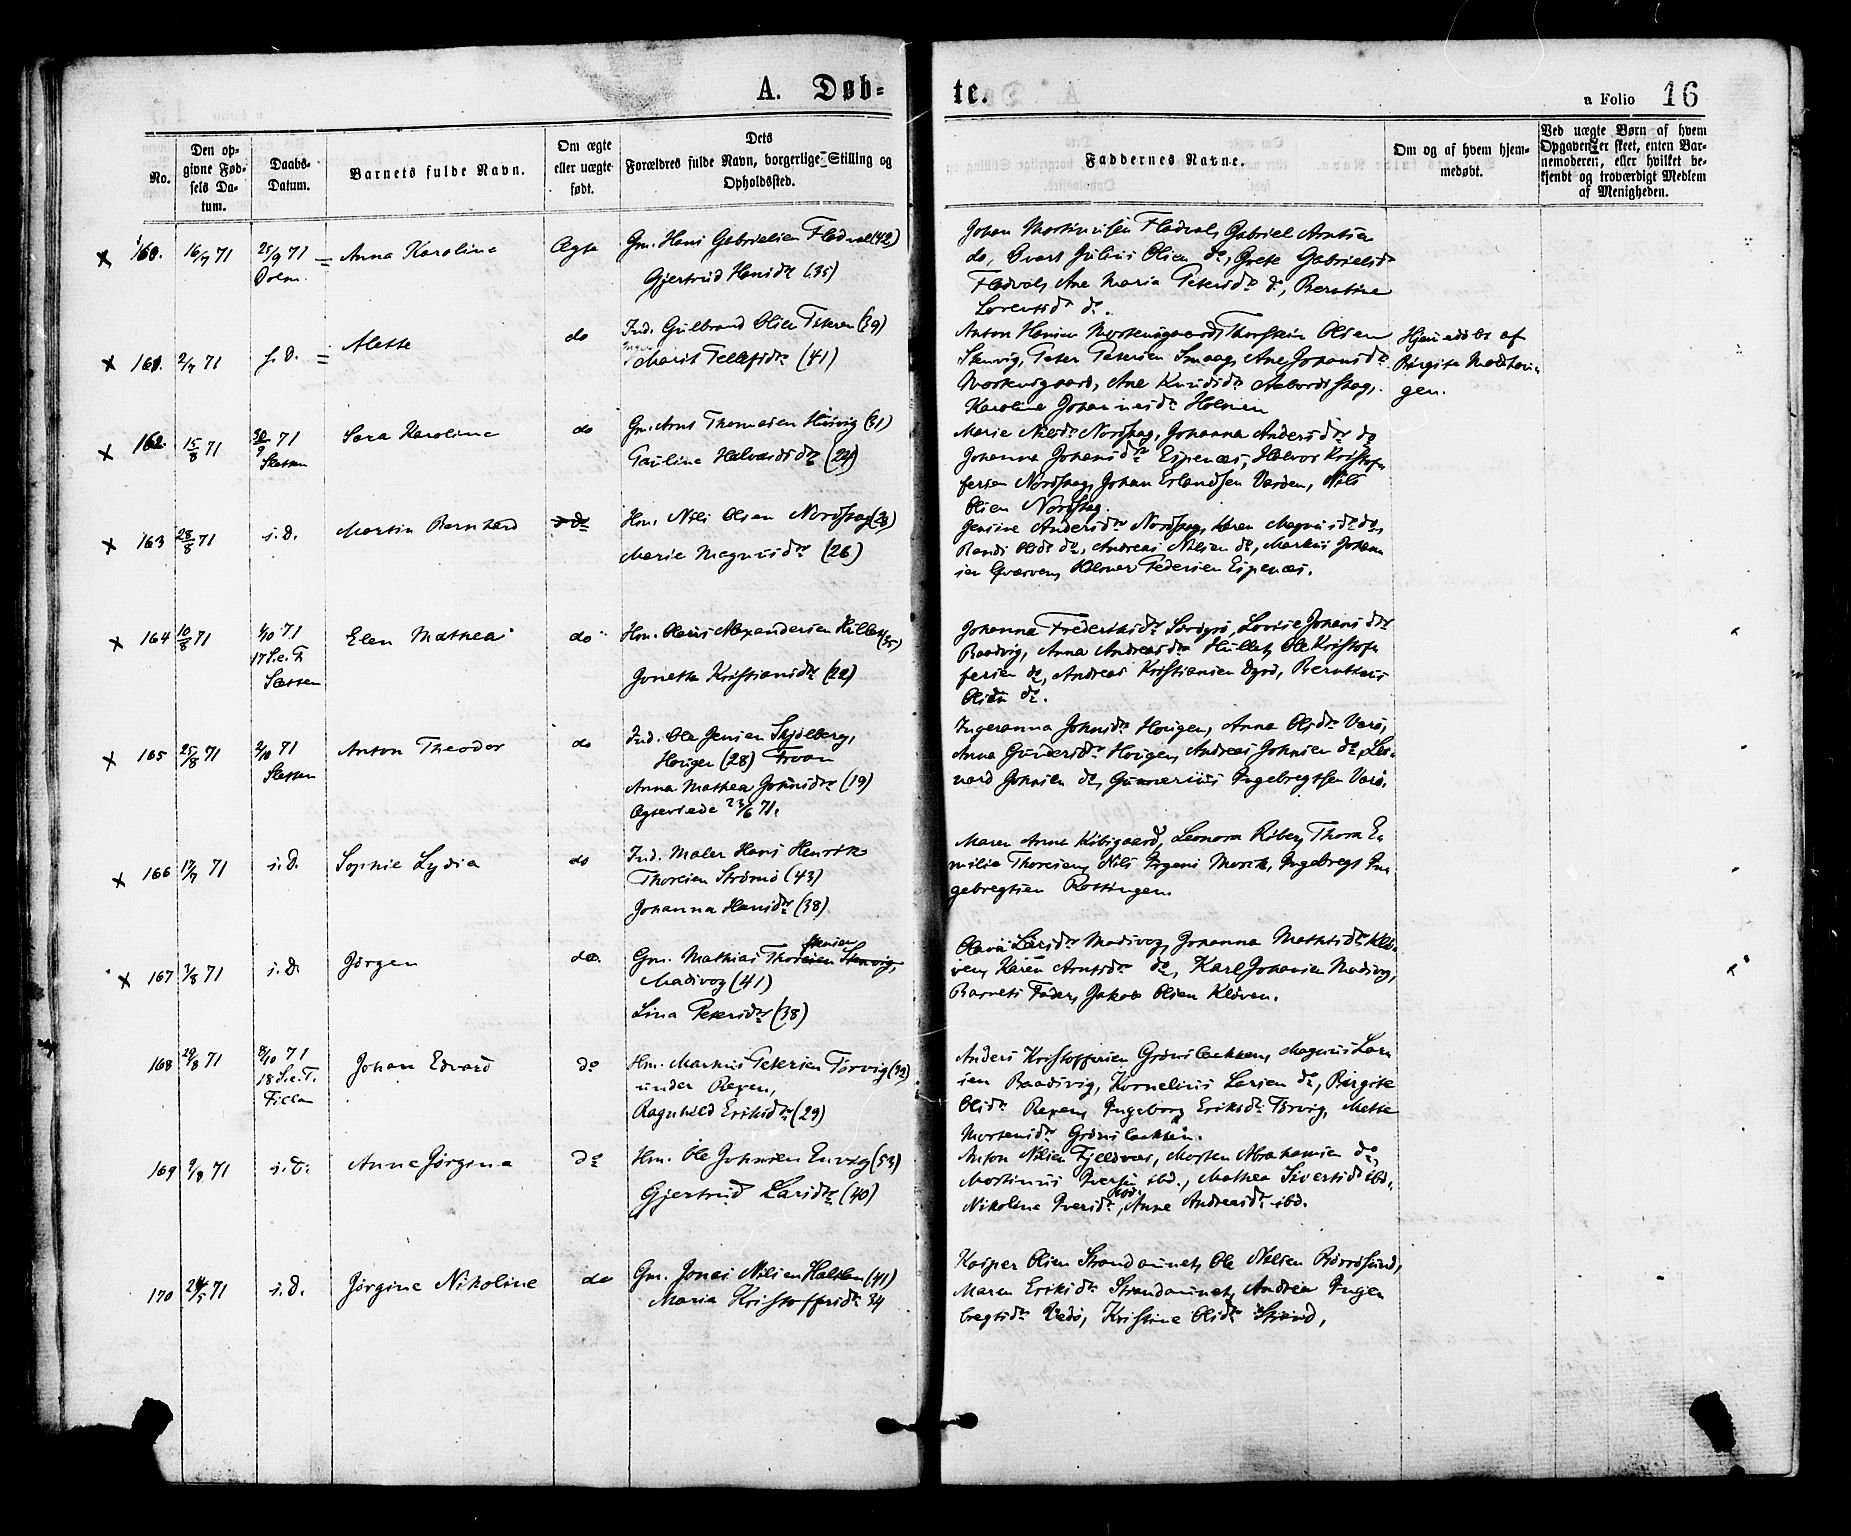 A. Døb-
te.
a Folio 16
No.
Den op-
givne Fød-
sels Da-
tum.
Daabs-
Datum.
Barnets fulde Navn.
Om ægte
eller uægte
født.
Dets
Forældres fulde Navn, borgerlige Stilling og
Opholdssted.
Faddernes Navne.
Om og af hvem hjem-
medøbt.
Ved uægte Børn af hvem
Opgaven er skeet, enten Bar-
nemoderen, eller hvilket be-
kjendt og troværdigt Medlem
af Menigheden.
160. 16/7 71 25/9 71 Anna Karolina Ægte Gm. Hans Gabrielsen Fladval (42)
Dolm.
Gjertrud Hansdtr (35)
Johan Martinusen Fladval, Gabriel Arntsen
do, Evart Julius Olsen do, Grete Gabrielsdtr
Fladval, Ane Maria Petersdtr do, Berntine
Lorentsdtr do.
161. 2/7 71 s. D. Alette do Ind. Gulbrand Olsen (39)
Marit Tellefsdtr (41)
Anton Hansen Mortensgaard, Thorstein Olsen
Stenvig, Peter Petersen Smaage, Ane Johansdtr
Mortensgaard, Ane Knudsdtr
Karoline Johannesdtr Holmen
Hjemmedøbt af
Birgitte
gen.
162. 15/8 71 30/9 71 Sara Karolina do Gm. Arnt Thomasen Husvig (31)
Sletten
Pauline Halvordsdtr (24)
Marie Nilsdtr Nordskag, Johanna Andersdtr do
Johanna Johansdtr Espenæs, Halvor Kristof-
fersen Nordskag, Johan Erlandsen Varden, Nils
Olsen Nordskag.
163 28/8 71 s. D. Martin Bernhard do Hm. Nils Olsen Nordskag
Marie Magnusdtr (26)
Jensine Andersdtr Nordskag, Karen Magnusdtr do,
Randi Olsdtr do, Andreas Nilsen do, Markus Johan-
sen Kværven, Pedersen Espenæs.
164 10/8 71 1/10 71 Elen Mathea do Hm. Olaus Alexandersen (35)
17 S. e. T.
Sletten
Jonetta Kristiansdtr (22)
Johanna Frederiksdtr Lovise Johansdtr
Baadvig, Anna Andreasdtr Ole Kristof-
fersen do, Andreas Kristiansen Dyrø, Berntinus
Olsen do.
165 25/8 71 2/10 71 Anton Theodor do Ind. Ole Jensen Skjølberg,
Sletten
Hougen (28) Froan
Anna Mathea Johnsdtr (19)
Ægteviede 23/6 71.
Ingeranna Johnsdtr Hougen, Anna Olsdtr Varø,
Anna Gundersdtr Hougen, Andreas Johnsen do, Le-
nard Johnsen do, Gunnerius Ingebregtsen Varø.
166 17/7 71 s. D. Sophie Lydia do Ind. Maler Hans Henrik
Thoresen Strømø (43)
Johanna Hansdtr (38)
Maren Anna Leonora Thora E-
milie Thoresen, Nils Jrgens Mørch, Ingebregt In-
gebregtsen Rottingen.
167 7/8 71 s. D. Jørgen do. Gm. Mathias Thoresen
Madsvog (41)
Lina Petersdtr (38)
Larsdtr Madsvog, Johanna Mathisdtr Klø-
ven, Karen Arntsdtr do, Karl Johansen Madsvog,
Barnets Fader, Jakob Olsen Kløven.
168 29/8 71 8/10 71 Johan Edvard do Hm. Markus Petersen Torvig (32)
18 S. e. T.
Fillan
under Reven,
Ragnhild Eriksdtr (29)
Anders Kristoffersen Magnus Lar-
sen Baadsvig, Kornelius Larsen do, Birgite
Olsdtr Reven, Ingeborg Eriksdtr Torvig, Mette
Mortensdtr
169 9/8 71 s. D. Anne Jørgina do Hm. Ole Johnsen (53)
Gjertrud Larsdtr (40)
Anton Nilsen Fjeldvær, Morten Abrahamsen do,
Martinus Iversen ibd., Mathea Sivertsdtr ibd.
Nikoline Iversdtr ibd, Anne Andreasdtr ibd.
170 24/5 71 s. D. Jørgine Nikoline do Gm. Jonas Nilsen Hatlen (41)
Maria Kristoffersdtr 34
Kasper Olsen Strandaunet, Ole Nilsen
Maren Eriksdtr Strandaunet, Andrea Inge-
bregtsdtr Vedø, Kristine Olsdtr Strand,